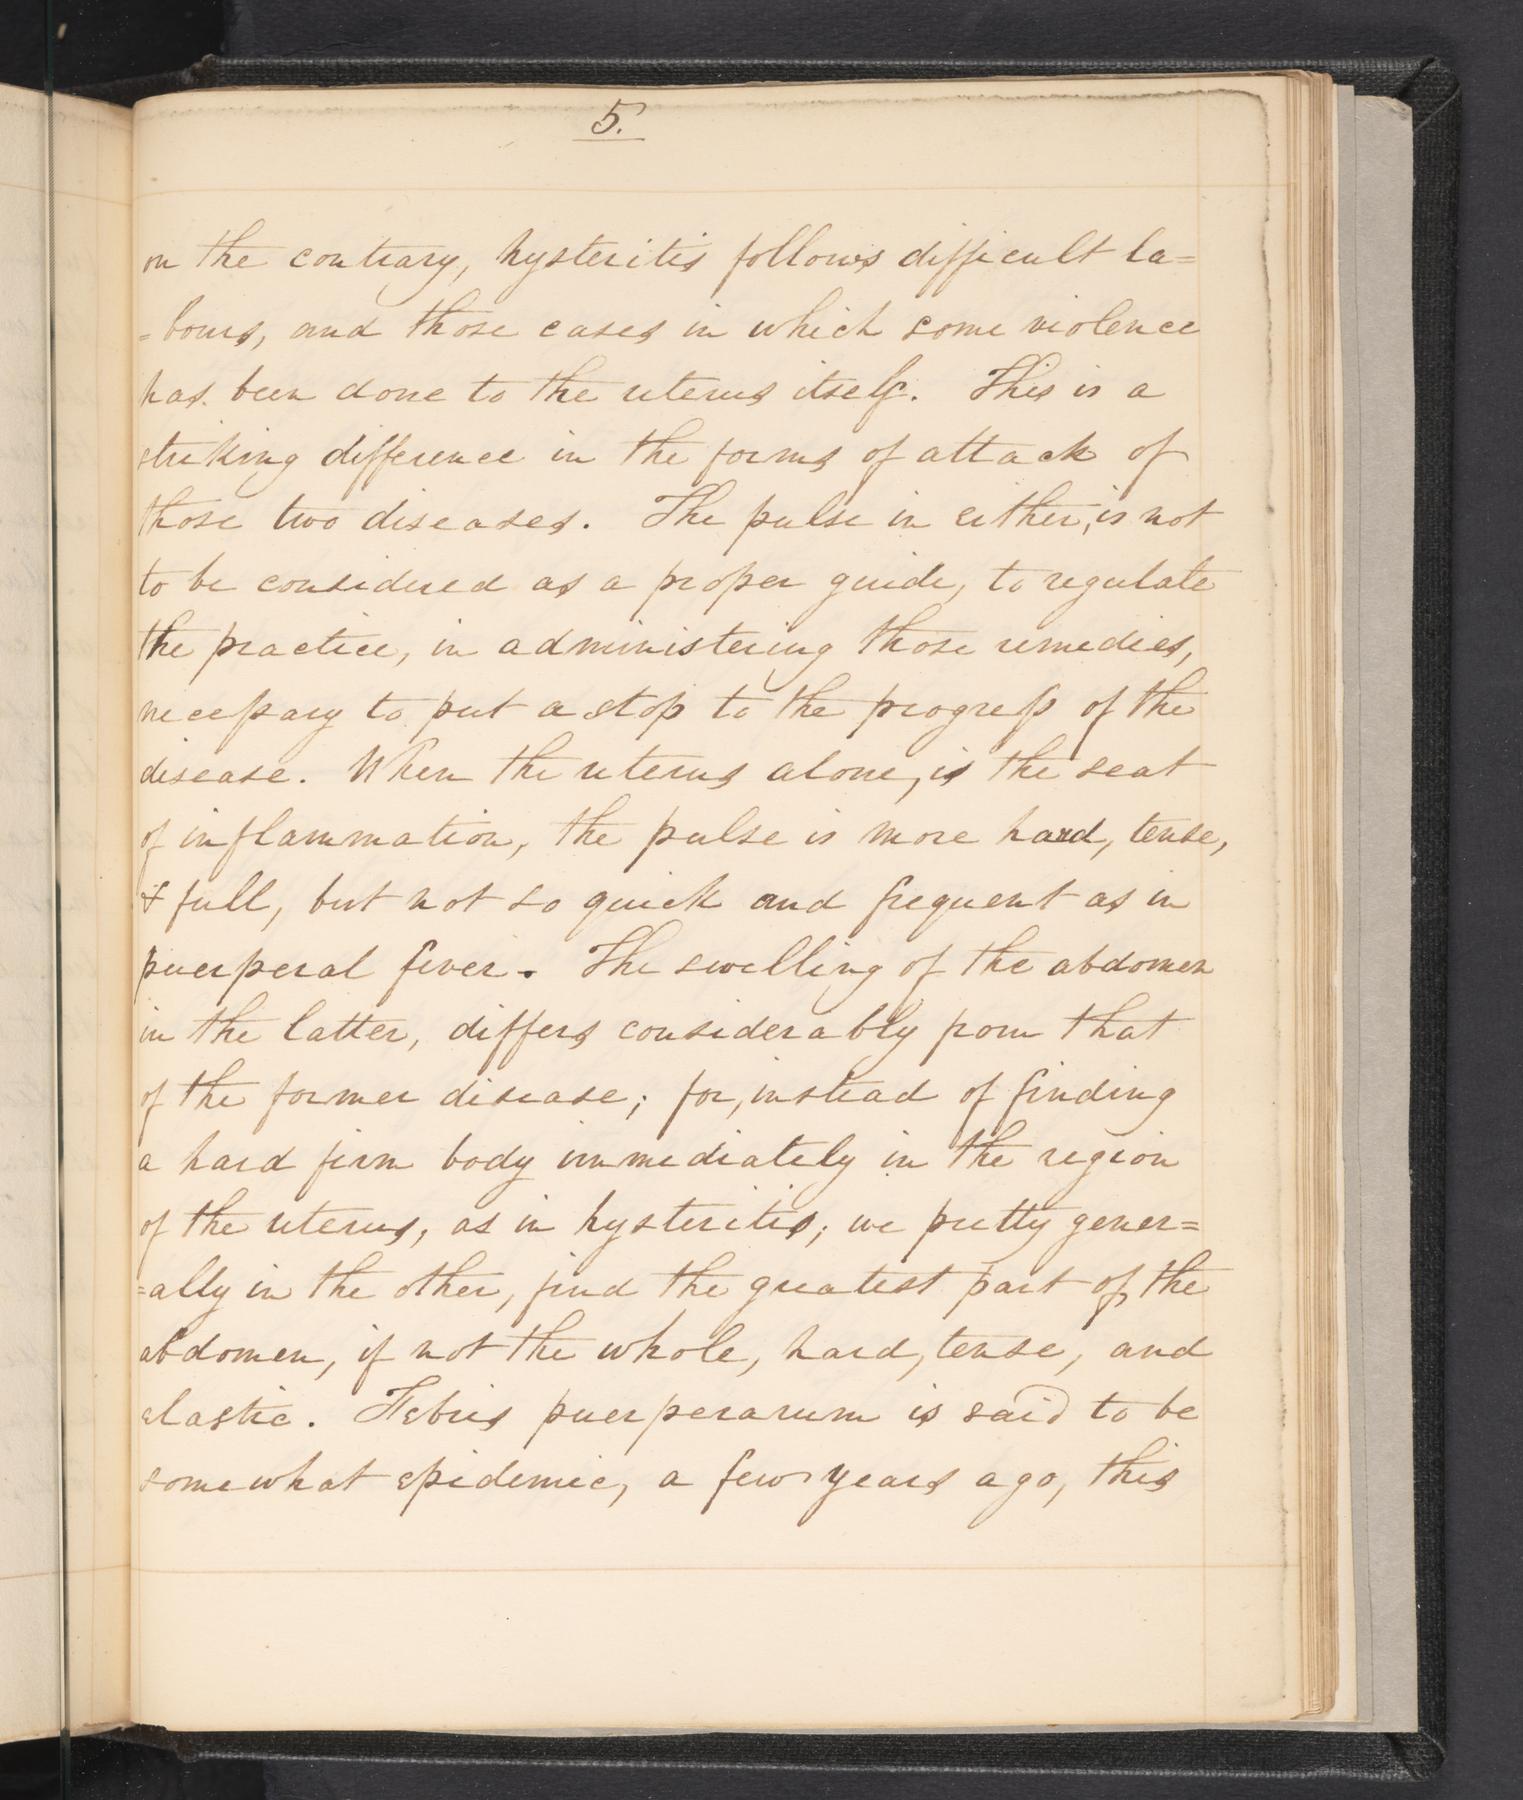 5.
on the contrary, hysteritis follows difficult la=
=bours, and those cases in which some violence
has been done to the uterus itself. This is a
striking difference in the forms of attack of
those two diseases. The pulse in either, is not
to be considered as a proper guide, to regulate
the practice, in administering those remedies,
necessary to put a stop to the progress of the
disease. When the uterus alone, is the seat
of inflammation, the pulse is more hard, tense,
& full, but not so quick and frequent as in
puerperal fever. The swelling of the abdomen
in the latter, differs considerably from that
of the former disease; for, instead of finding
a hard firm body immediately in the region
of the uterus, as in hysteritis; we pretty gener=
=ally in the other, find the greatest part of the
abdomen, if not the whole, hard, tense, and
elastic. Febris puerperarum is said to be
somewhat epidemic, a few years ago, this